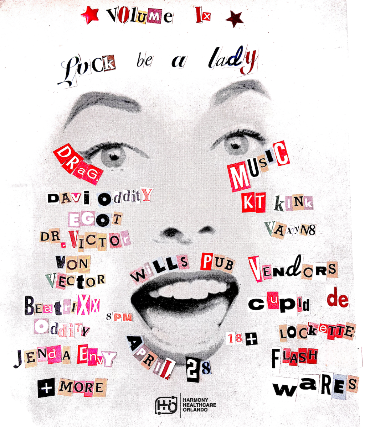 VOLUME IX
Luck be a lady
DRAG
DAVI OddiTY
EGOT
DR. VICTOR
VON
VECTOR
BEATRIXX
Oddity
8PM
JENDA ENVY
+MORE
WILLS PUB
APRIL 28
18+
MUSIC
KT KINK
VAXYN8
VENdORS
CUPId de
LOCKETTE
FLASH
WARES
HARMONY
HEALTHCARE
ORLANDO